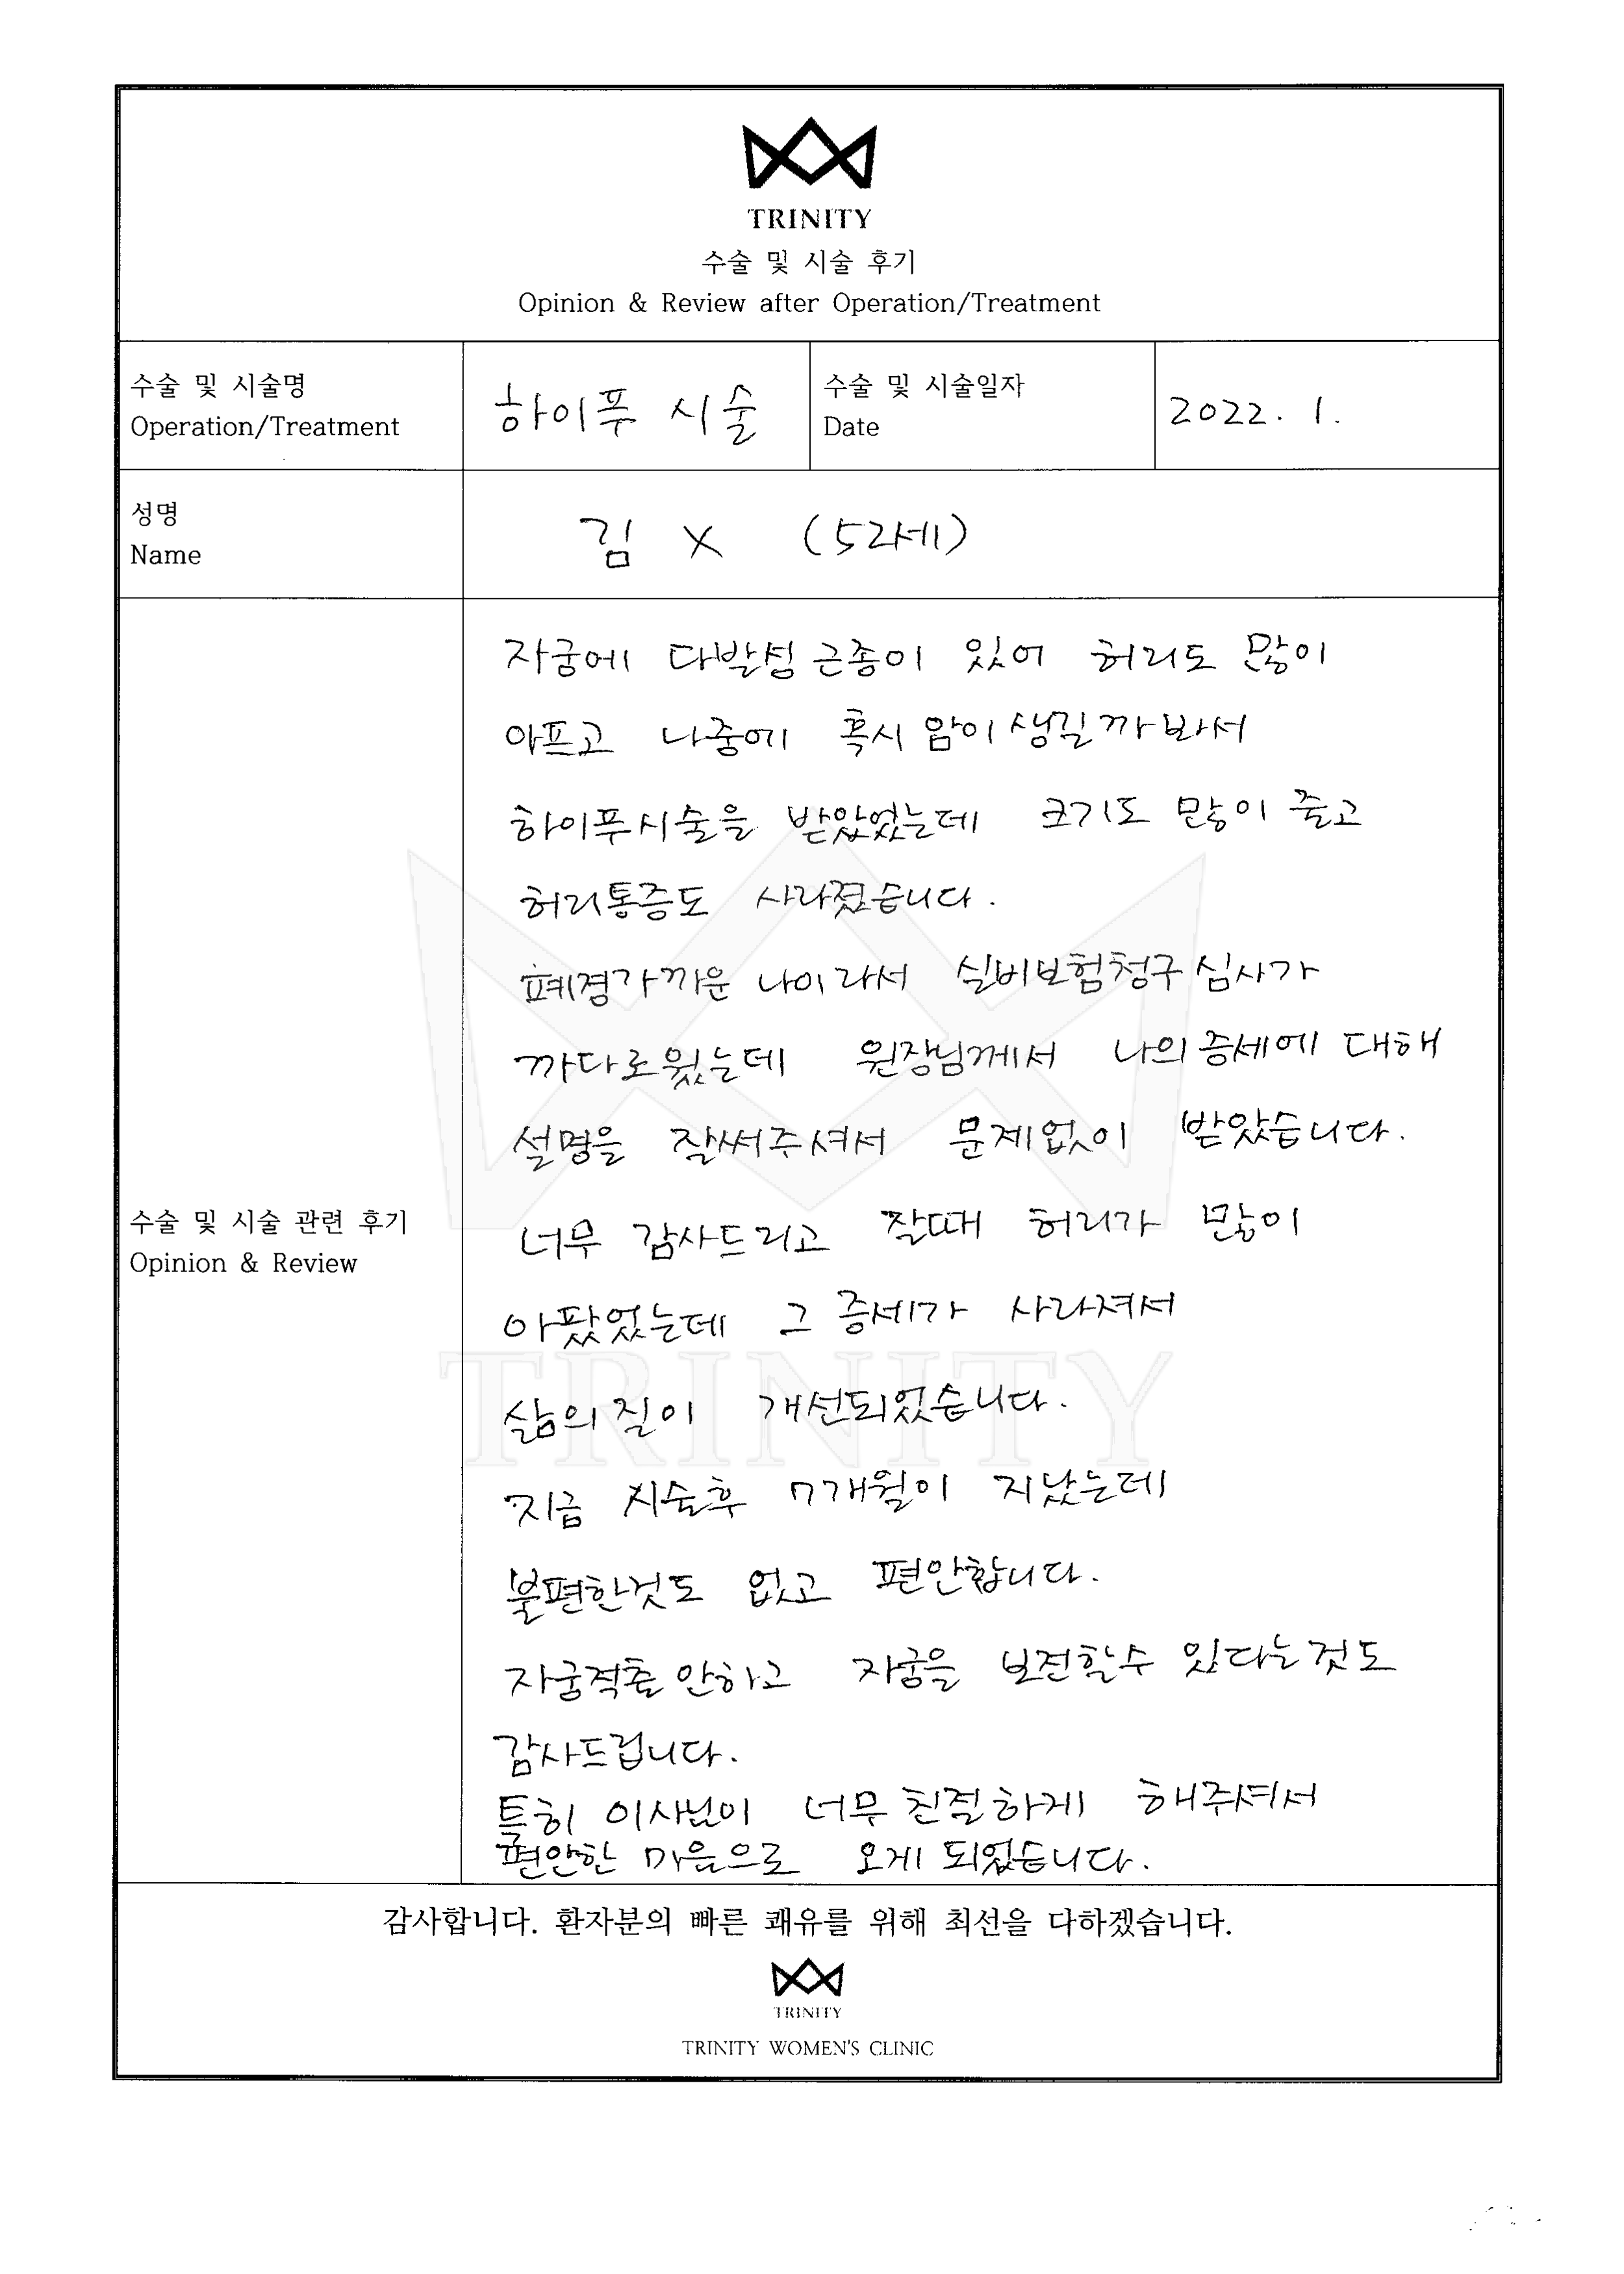 TRINITY
수술 및 시술 후기
Opinion & Review after Operation/Treatment
수술 및 시술명
Operation/Treatment
하이푸 시술
수술 및 시술일자
Date
2022. 1.
성명
Name
김 X (52세)
수술 및 시술 관련 후기
Opinion & Review
자궁에 다발성 근종이 있어 허리도 많이
아프고 나중에 혹시 암이 생길까 봐서
하이푸시술을 받았었는데 크기도 많이 줄고
허리통증도 사라졌습니다.
폐경가까운 나이라서 실비보험청구 심사가
까다로웠는데 원장님께서 나의 증세에 대해
설명을 잘써주셔서 문제없이 받았습니다.
너무 감사드리고 잘때 허리가 많이
아팠었는데 그 증세가 사라져서
삶의 질이 개선되었습니다.
지금 시술후 7개월이 지났는데
불편한것도 없고 편안합니다.
자궁적출 안하고 자궁을 보전할수 있다는것도
감사드립니다.
특히 이사님이 너무 친절하게 해주셔서
편안한 마음으로 오게 되었습니다.
TRINITY
감사합니다. 환자분의 빠른 쾌유를 위해 최선을 다하겠습니다.
TRINITY
TRINITY WOMEN'S CLINIC